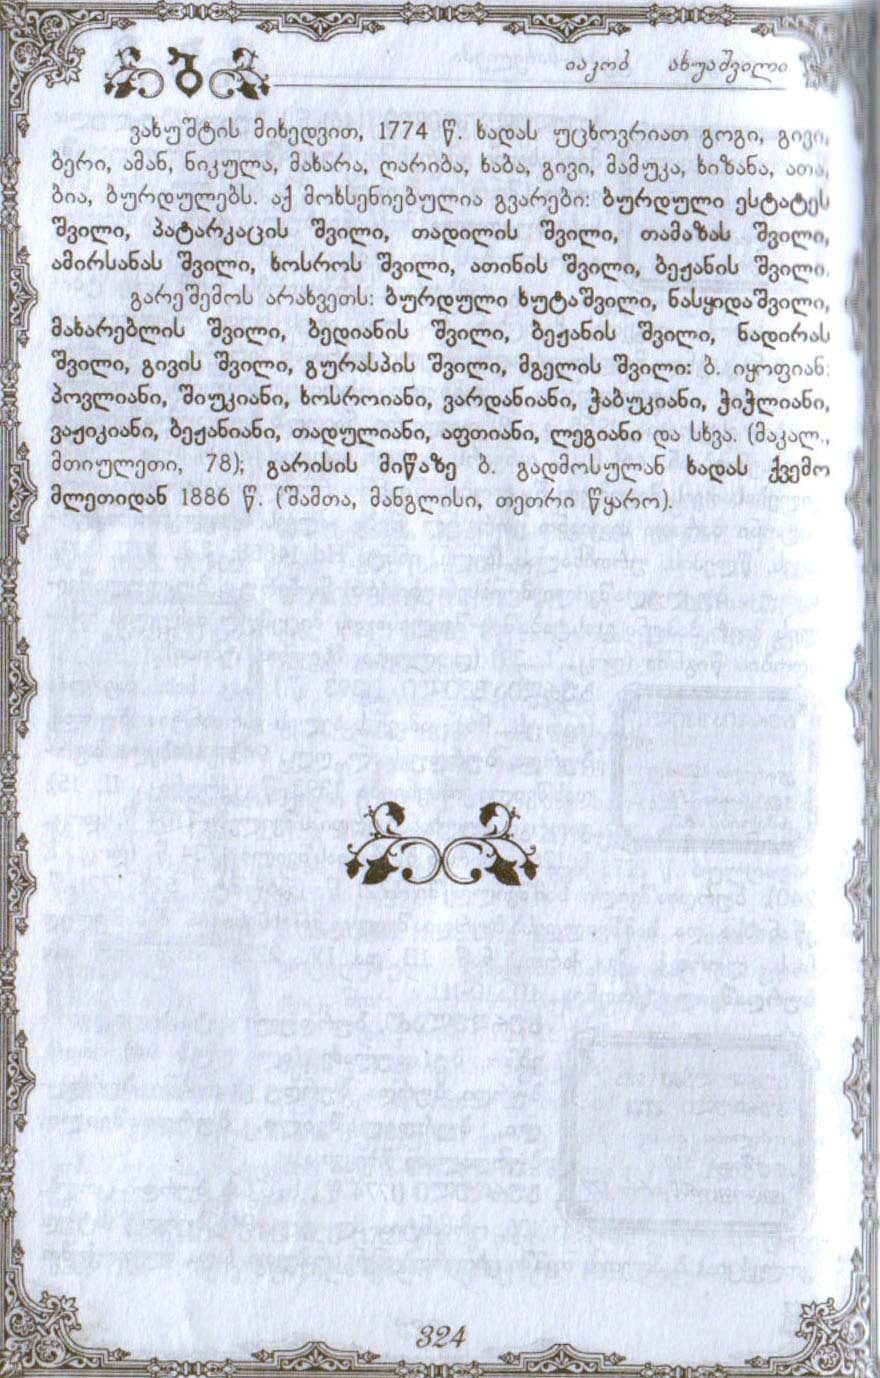 იაკობ ახუაშვილი
ვახუშტის მიხედვით, 1774 წ. ხადას უცხოვრიათ გოგი, გივი,
ბერი, ამან, ნიკულა, მახარა, ღარიბა, ხაბა, გივი, მამუკა, ხიზანა, ათა,
ბია, ბურდულებს. აქ მოხსენიებულია გვარები: ბურდული ესტატეს
შვილი, პატარკაცის შვილი, თადილის შვილი, თამაზას შვილი,
ამირსანას შვილი, ხოსროს შვილი, ათინის შვილი, ბეჟანის შვილი.
გარეშემოს არახვეთს: ბურდული ხუტაშვილი, ნასყიდაშვილი,
მახარებლის შვილი, ბედიანის შვილი, ბეჟანის შვილი, ნადირას
შვილი, გივის შვილი, გურასპის შვილი, მგელის შვილი: ბ. იყოფიან:
პოვლიანი, შიუკიანი, ხოსროიანი, ვარდანიანი, ჭაბუკიანი, ჭიჭლიანი,
ვაჟიკიანი, ბეჟანიანი, თადულიანი, აფთიანი, ლეგიანი და სხვა. (მაკალ.,
მთიულეთი, 78); გარისის მიწაზე ბ. გადმოსულან ხადას ქვემო
მლეთიდან 1886 წ. (შამთა, მანგლისი, თეთრი წყარო).
324